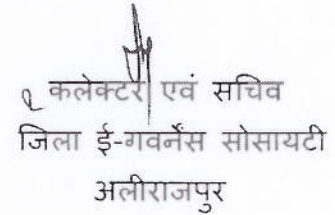 कलेक्टर एवं सचिव
जिला ई-गवर्नेंस सोसायटी
अलीराजपुर